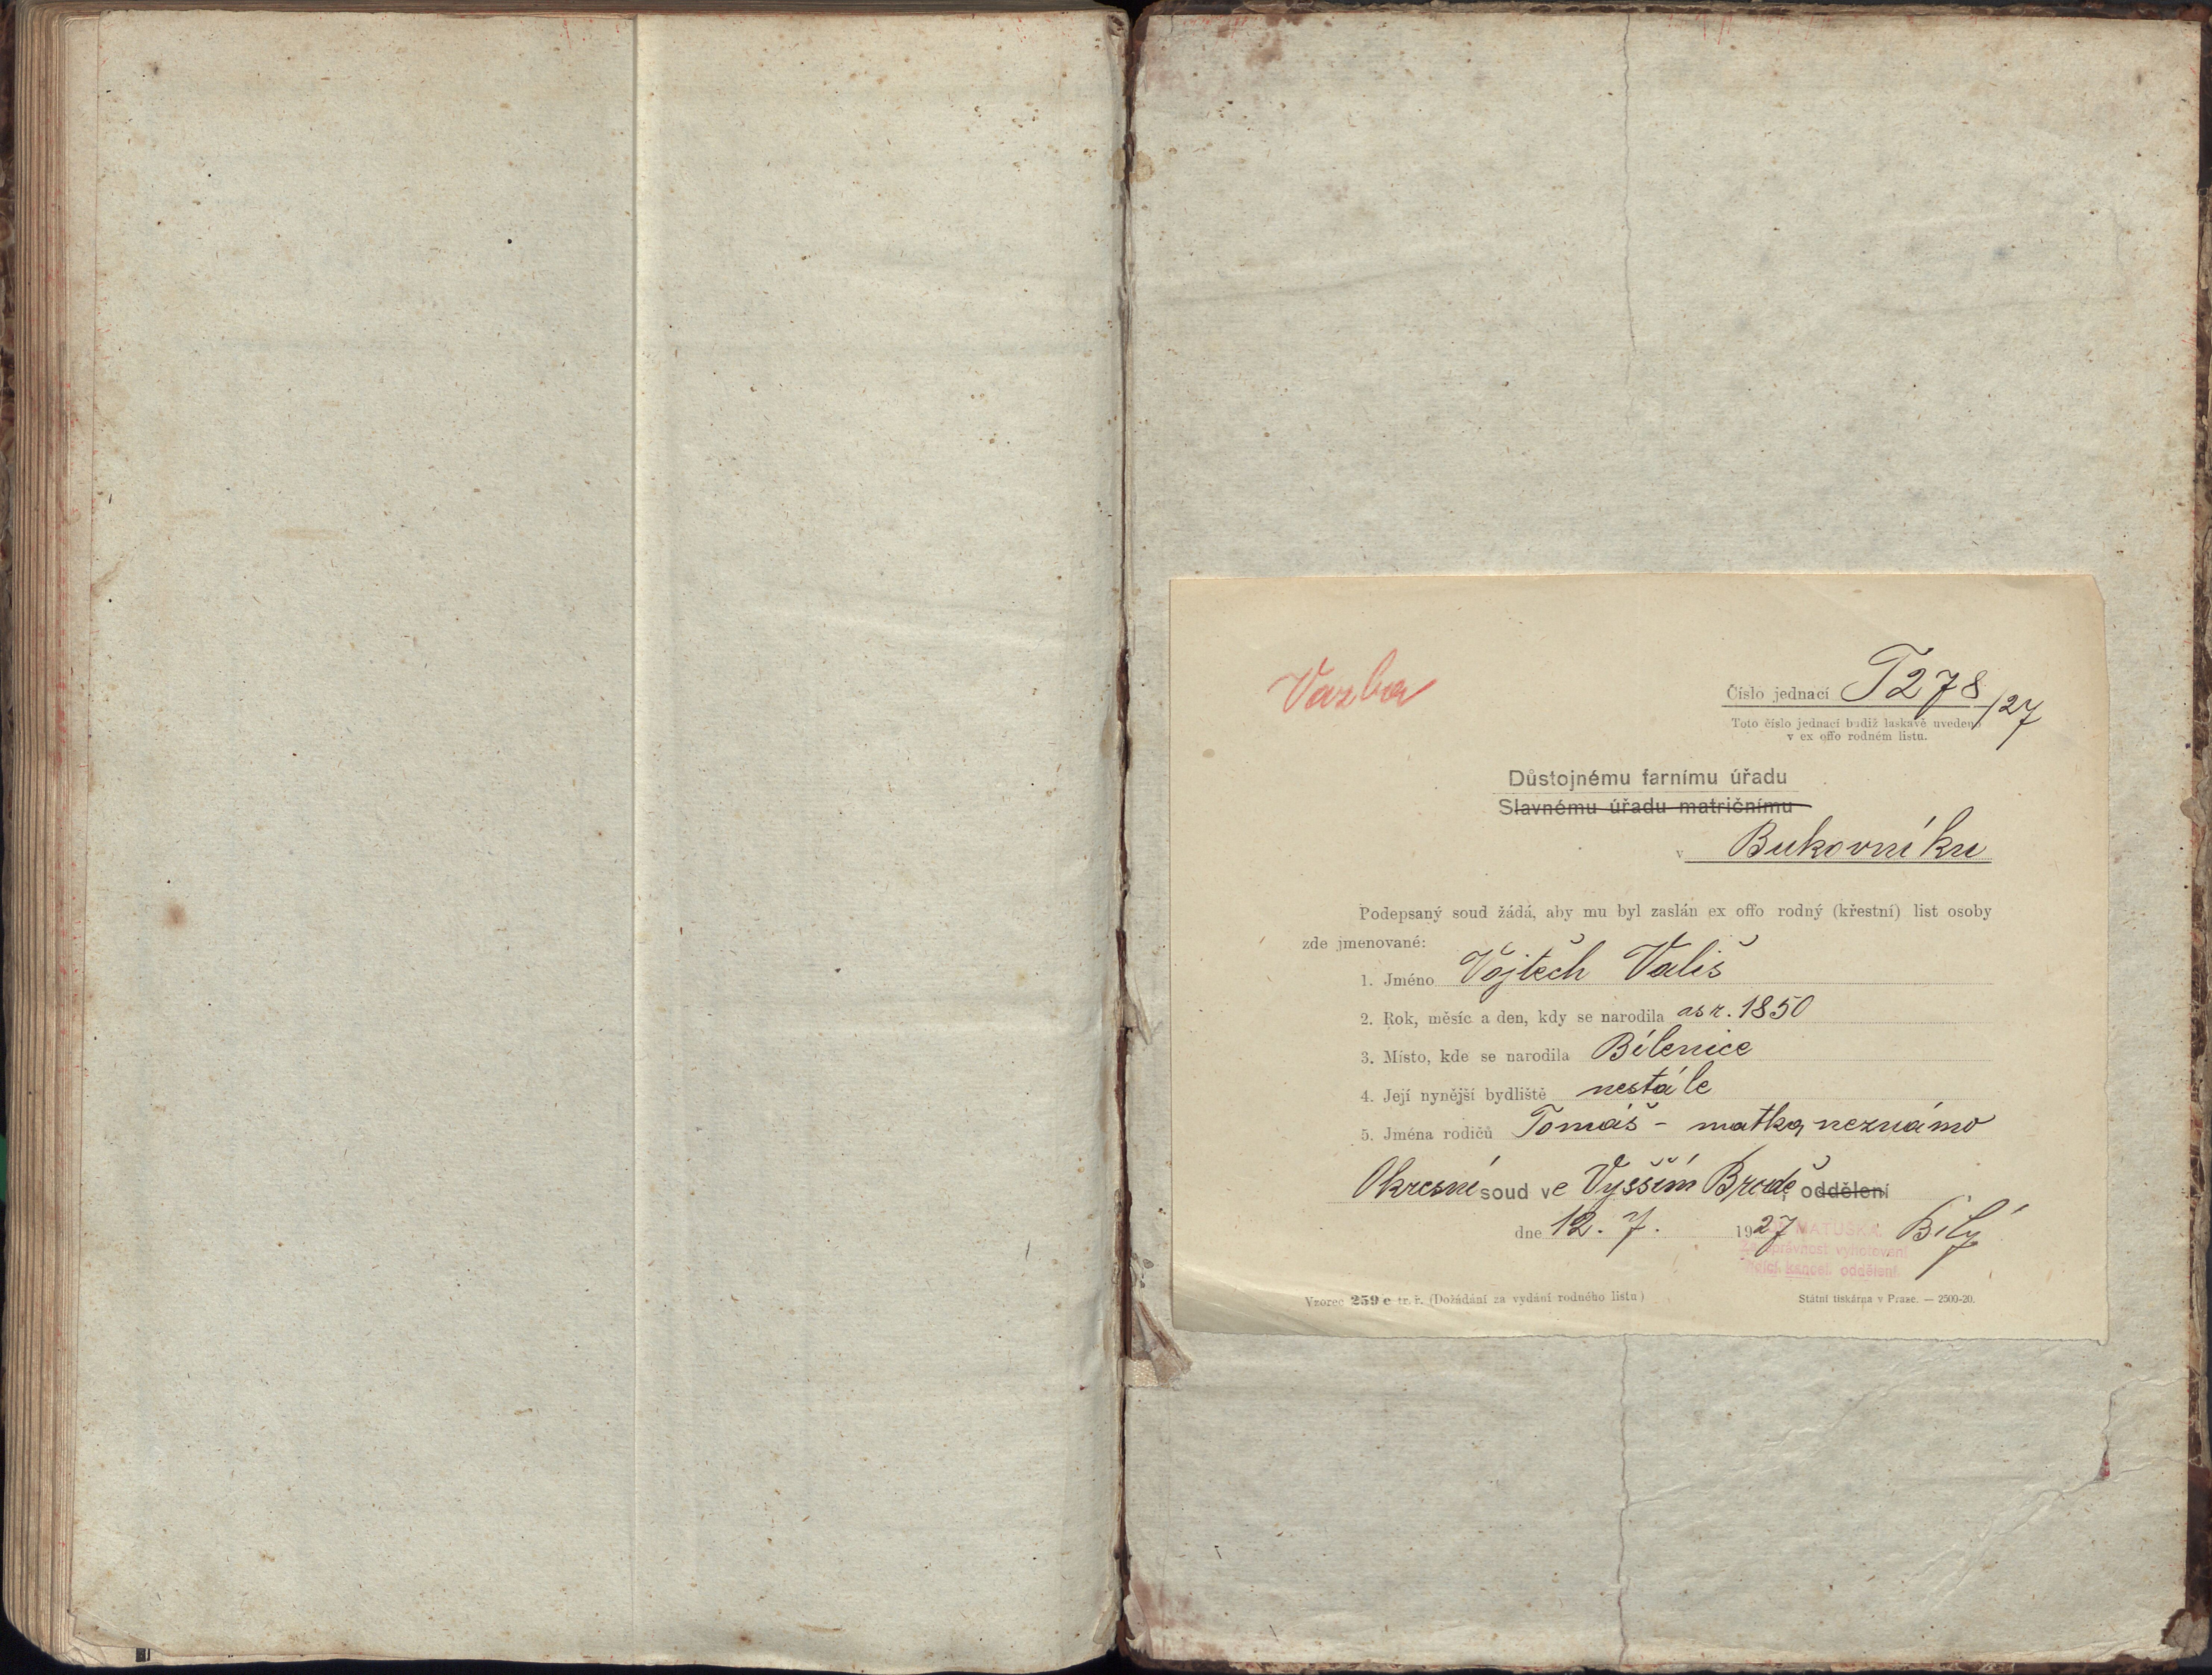 Vazba
Číslo jednací T 278/27
Toto číslo jednací budiž laskavě uvedeno
v ex offo rodném listu.
Důstojnému farnímu úřadu
Slavnému úřadu matričnímu
v Bukovníku
Podepsaný soud žádá, aby mu byl zaslán ex offo rodný (křestní) list osoby
zde jmenované:
1. Jméno Vojtěch Vališ
2. Rok, měsíc a den, kdy se narodila as r. 1850
3. Místo, kde se narodila Bílenice
4. Její nynější bydliště nestálé
5. Jména rodičů Tomáš - matka neznámo
Okresní soud ve Vyšším Brodě, oddělení
dne 12. 7. 1927 Bílý
MATUŠKA
Za správnost vyhotovení
řídící kancel. oddělení
Vzorec 259 c tr. ř. (Dožádání za vydání rodného listu)
Státní tiskárna v Praze. — 2500-20.